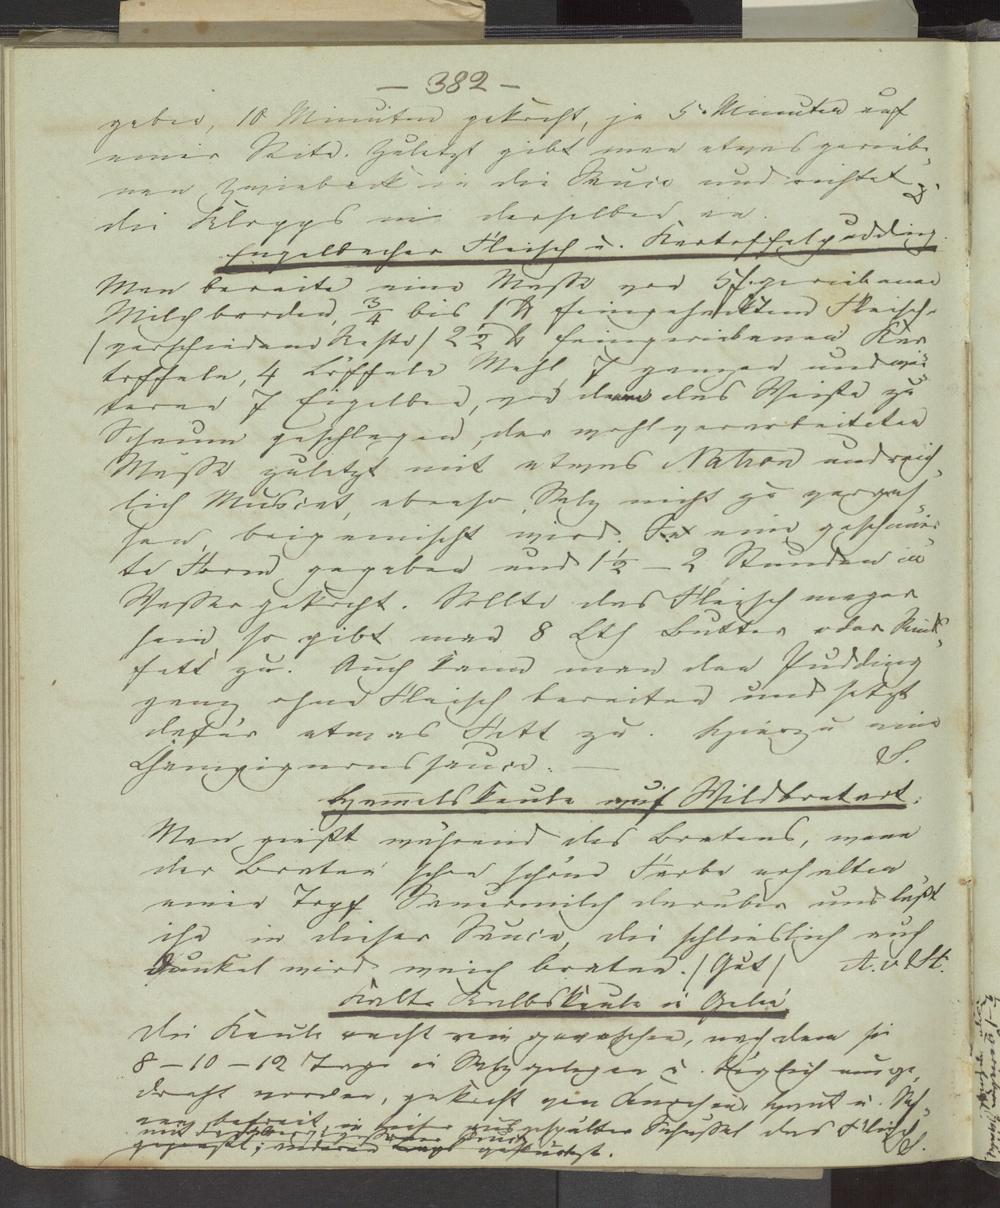 – 382 –
geben, 10 Minuten gekocht, je 5 Minuten auf
einer Seite. Zuletzt gibt man etwas geriebe-
nen Zwieback in die Sauce und richtet
die Klopps in derselben an.
Engelbacher Fleisch u. Kartoffelpudding.
Man bereite eine Masse von 5 geriebenen
Milchbroden, 3/4 bis 1 ℔ feingehacktem Fleisch
(verschiedene Reste) 2 1/2 ℔ feingeriebenen Kar
toffeln, 4 Löffeln Mehl, 7 ganzen und wei
teren 7 Eigelben, von denen das Weiße zu
Schaum geschlagen, der wohlverarbeiteten
Masse zuletzt mit etwas Natron und reich-
lich Muscat, ebenso Salz nicht zu verges
sen, beigemischt wird. In eine geschmier
te Form gegeben und 1 1/2 – 2 Stunden in
Wasser gekocht. Sollte das Fleisch mager
sein, so gibt man 8 Lth Butter oder Rinds-
fett zu. Auch kann man den Pudding
ganz ohne Fleisch bereiten und setzt
dafür etwas Fett zu. Hierzu eine
Champignonssauce. — S.
Hammelskeule auf Wildbratart.
Man gießt während des Bratens, wenn
der Braten schon schöne Farbe erhalten
einen Topf Sauermilch darüber und läßt
ihn in dieser Sauce, die schließlich auch
dunkel wird weich braten. (Gut) A. v. St.
Kalte Kalbskeule in Gelée
Die Keule recht rein gewaschen, nach dem sie
8 – 10 – 12 Tage in Salz gelegen u. täglich umge-
dreht worden, gekocht von Knochen, Haut u. Seh-
nen befreit, in heiß ausgespülter Schüssel das Fleisch
gepreßt, gestürzt. S.